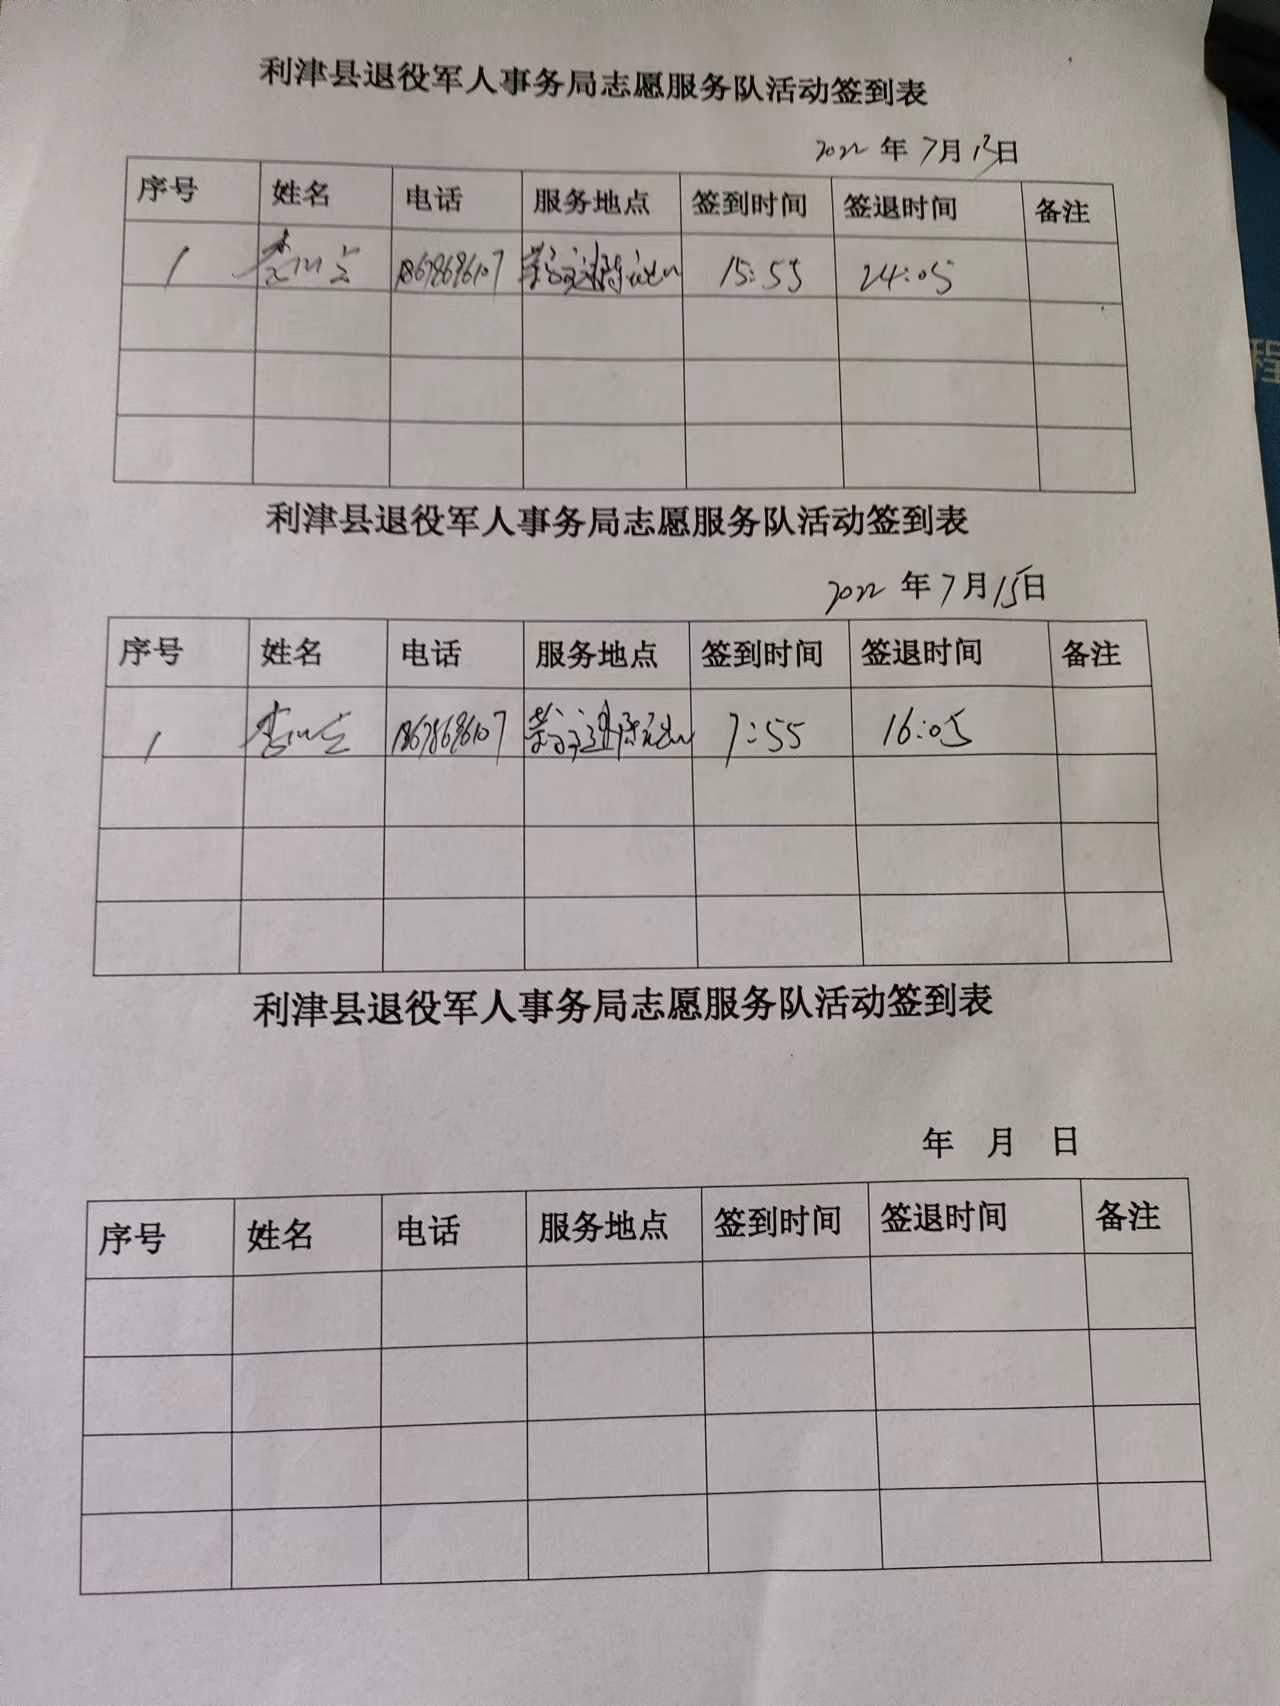 利津县退役军人事务局志愿服务队活动签到表
2022 年 7月13日
序号 姓名 电话 服务地点 签到时间 签退时间 备注
1 18678696107 15:55 24:05
利津县退役军人事务局志愿服务队活动签到表
2022 年 7月15日
序号 姓名 电话 服务地点 签到时间 签退时间 备注
1 18678696107 7:55 16:05
利津县退役军人事务局志愿服务队活动签到表
年 月 日
序号 姓名 电话 服务地点 签到时间 签退时间 备注
程